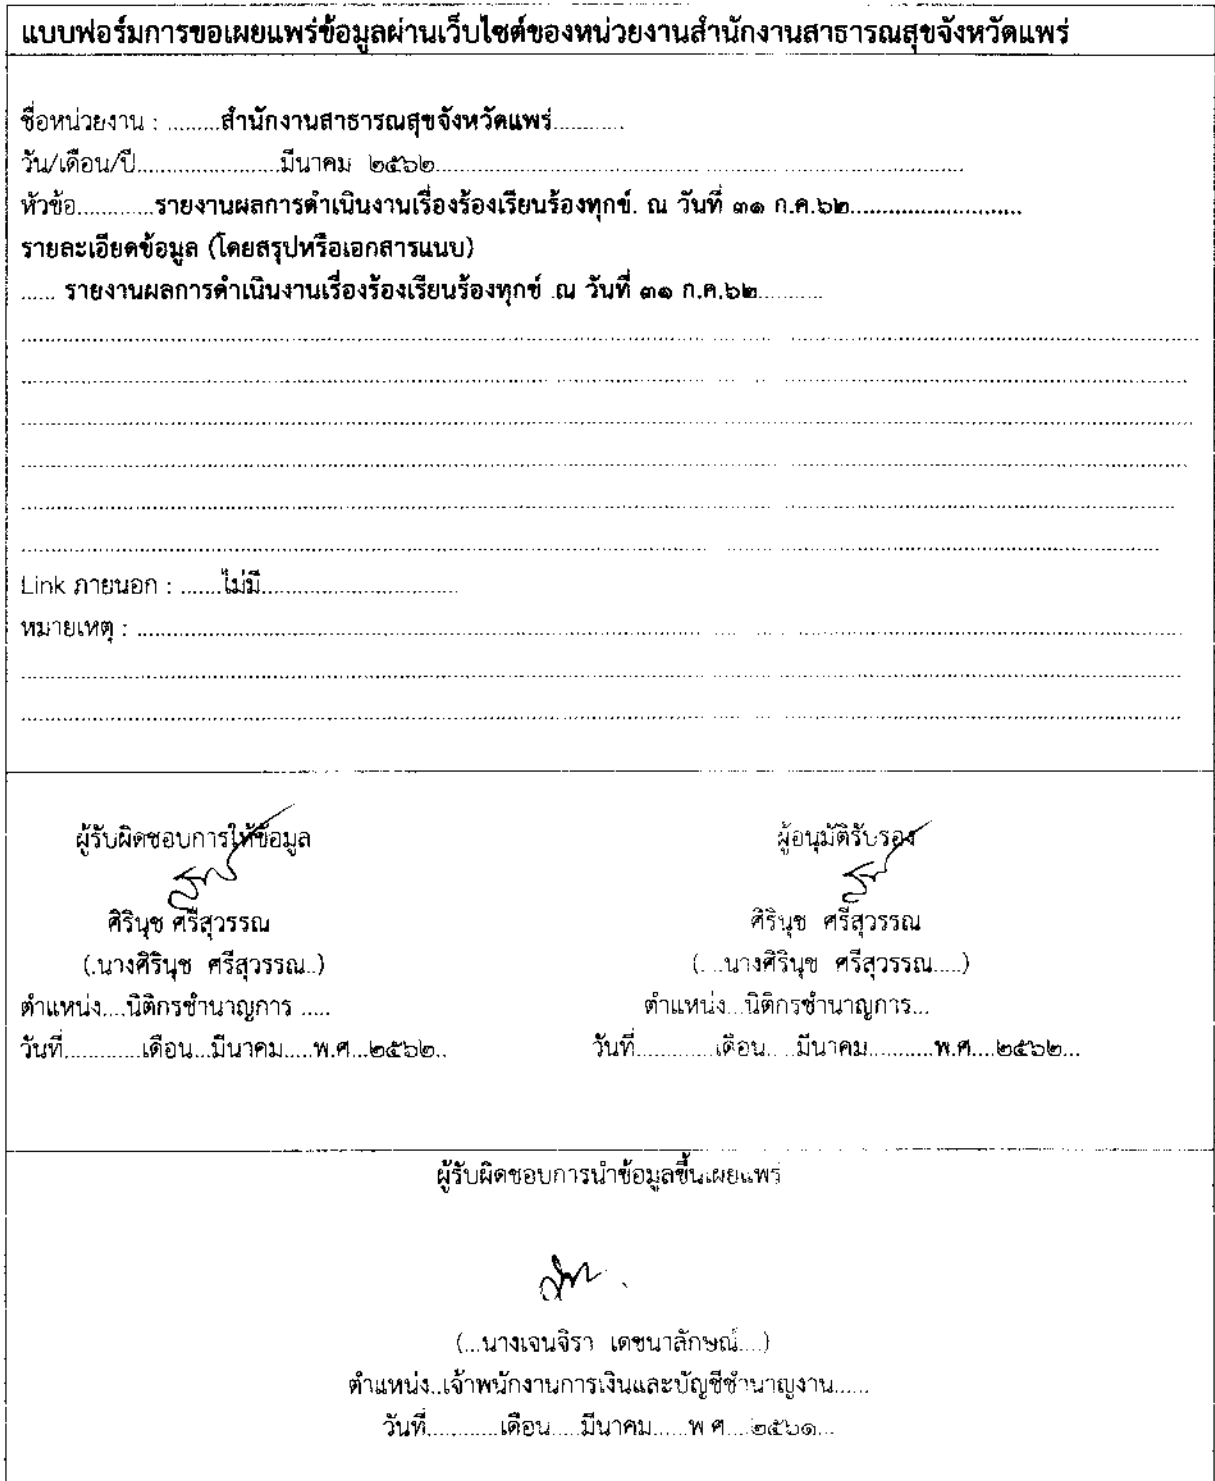 แบบฟอร์มการขอเผยแพร่ข้อมูลผ่านเว็บไซต์ของหน่วยงานสำนักงานสาธารณสุขจังหวัดแพร่
ชื่อหน่วยงาน : .........สำนักงานสาธารณสุขจังหวัดแพร่............
วัน/เดือน/ปี........................มีนาคม ๒๕๖๒........................................................................................
หัวข้อ.............รายงานผลการดำเนินงานเรื่องร้องเรียนร้องทุกข์. ณ วันที่ ๓๑ ก.ค.๖๒..........................
รายละเอียดข้อมูล (โดยสรุปหรือเอกสารแนบ)
...... รายงานผลการดำเนินงานเรื่องร้องเรียนร้องทุกข์ .ณ วันที่ ๓๑ ก.ค.๖๒...........
Link ภายนอก : .......ไม่มี.................................
หมายเหตุ : ........................................................................................................
ผู้รับผิดชอบการให้ข้อมูล ผู้อนุมัติรับรอง
ศิรินุช ศรีสุวรรณ ศิรินุช ศรีสุวรรณ
(.นางศิรินุช ศรีสุวรรณ..) (....นางศิรินุช ศรีสุวรรณ.....)
ตำแหน่ง....นิติกรชำนาญการ ..... ตำแหน่ง...นิติกรชำนาญการ...
วันที่.............เดือน...มีนาคม.....พ.ศ...๒๕๖๒.. วันที่.............เดือน.....มีนาคม...........พ.ศ....๒๕๖๒...
ผู้รับผิดชอบการนำข้อมูลขึ้นเผยแพร่
(...นางเจนจิรา เดชนาลักษณ์....)
ตำแหน่ง..เจ้าพนักงานการเงินและบัญชีชำนาญงาน......
วันที่............เดือน.....มีนาคม......พ.ศ....๒๕๖๑...